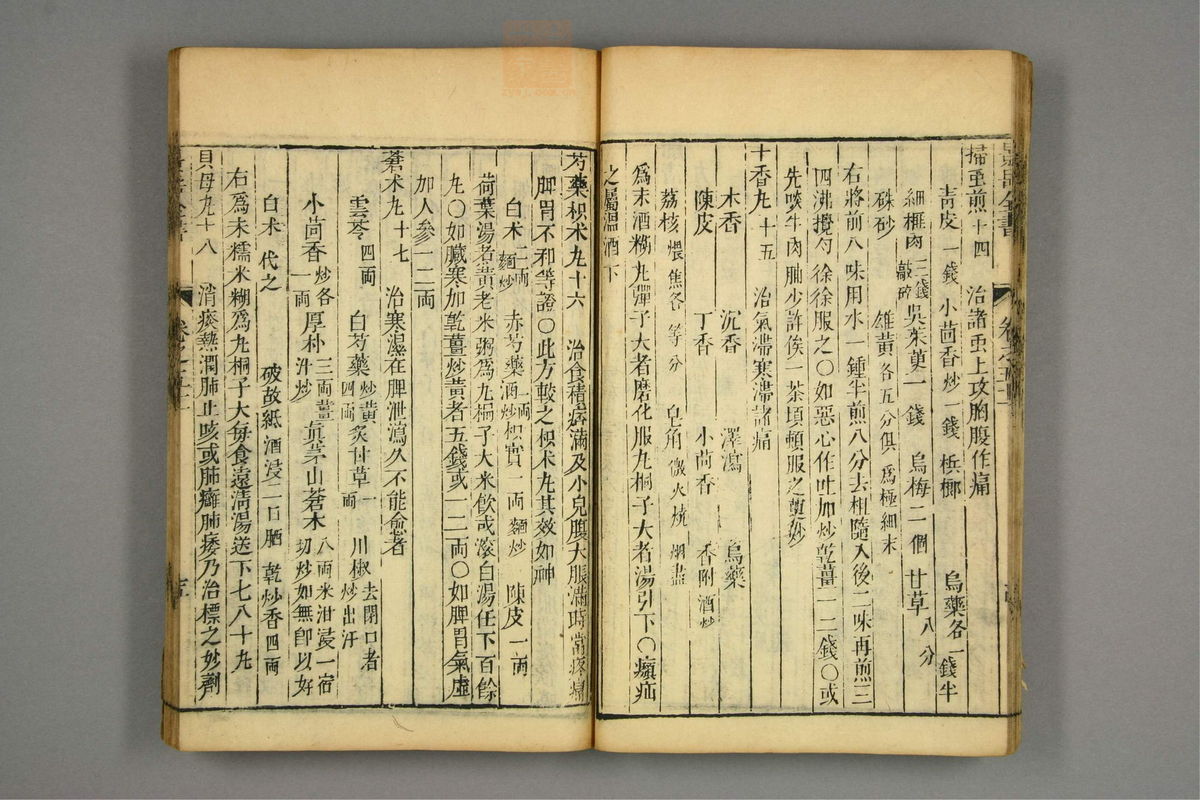 掃虫煎十四 治諸虫上攻胸腹作痛
青皮一錢 小茴香炒一錢 梹榔 烏藥各一錢半
細榧肉三錢敲碎 吳茱萸一錢 烏梅二個 甘草八分
硃砂 雄黃各五分俱為極細末
右將前八味用水一鍾半煎八分去柤隨入後二味再煎三
四沸攪勻徐徐服之〇如惡心作吐加炒乾薑一二錢〇或
先啖牛肉脯少許俟一茶頃頓服之更妙
十香丸十五 治氣滯寒滯諸痛
木香 沉香 澤瀉 烏藥
陳皮 丁香 小茴香 香附酒炒
荔核煨焦各等分 皂角微火燒烟盡
為末酒糊丸彈子大者磨化服丸桐子大者湯引下〇㿗疝
之屬溫酒下
芍藥枳术丸十六 治食積痞滿及小兒腹大脹滿時常疼痛
脾胃不和等證〇此方較之枳术丸其效如神
白术二兩麵炒 赤芍藥二兩酒炒 枳實一兩麵炒 陳皮一兩
荷葉湯煮黃老米粥為丸桐子大米飲或滾白湯任下百餘
丸〇如臟寒加乾薑炒黃者五錢或一二兩〇如脾胃氣虛
加人參一二兩
蒼术丸十七 治寒濕在脾泄瀉久不能愈者
雲苓四兩 白芍藥炒黃四兩 炙甘草一兩 川椒去閉口者炒出汗
小茴香炒各一兩 厚朴三兩薑汁炒 真茅山蒼术八兩米泔浸一宿切炒如無即以好
白术代之 破故紙酒浸二日晒乾炒香四兩
右為末糯米糊為丸桐子大每食遠清湯送下七八十丸
貝母丸十八 消痰熱潤肺止咳或肺癰肺痿乃治標之妙劑